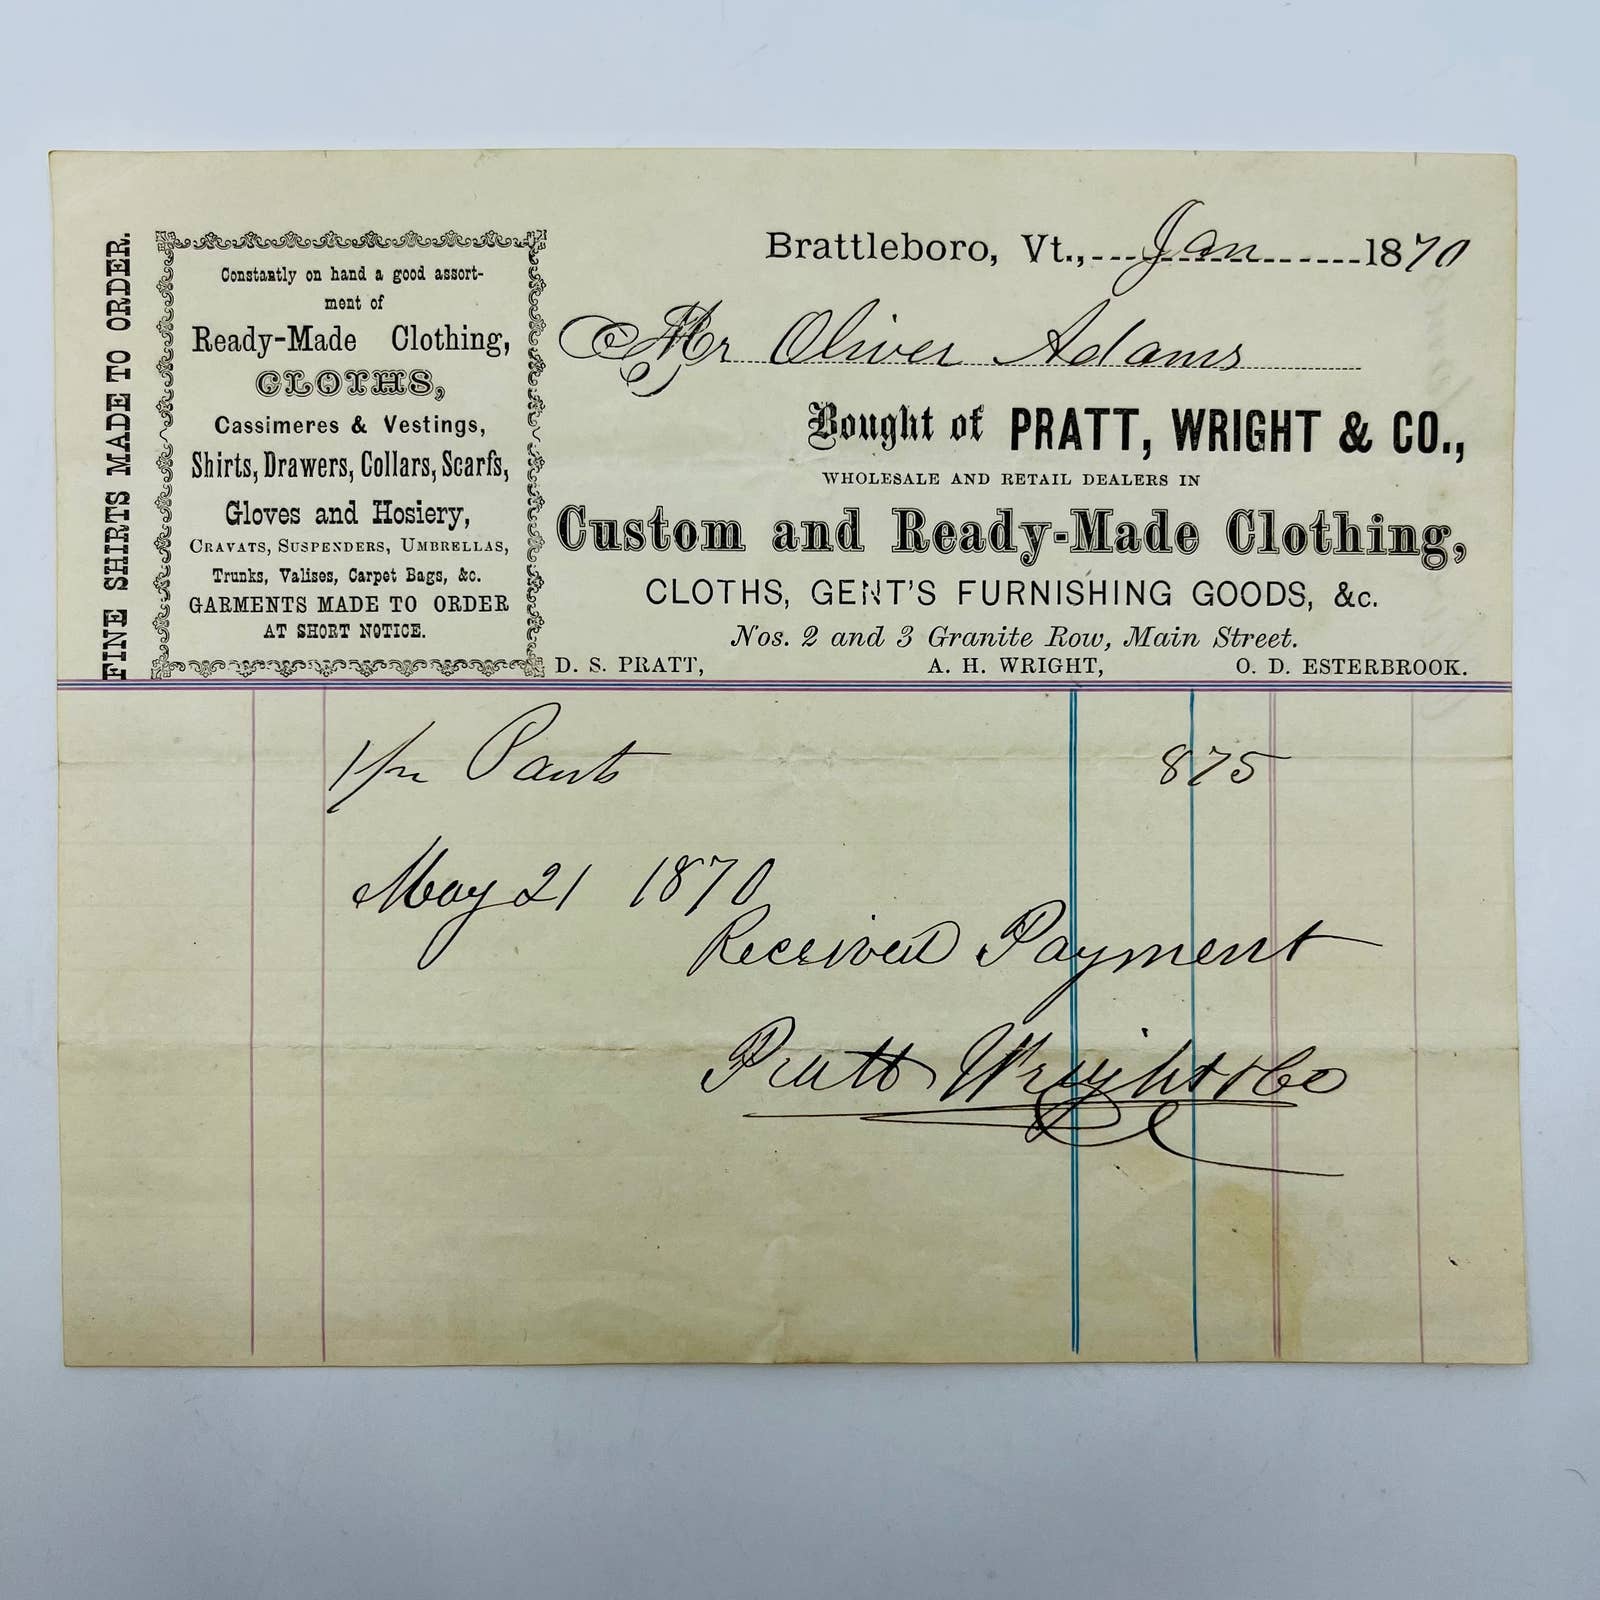 FINE SHIRTS MADE TO ORDER.
Constantly on hand a good assort-
ment of
Ready-Made Clothing,
CLOTHS,
Cassimeres & Vestings,
Shirts, Drawers, Collars, Scarfs,
Gloves and Hosiery,
CRAVATS, SUSPENDERS, UMBRELLAS,
Trunks, Valises, Carpet Bags, &c.
GARMENTS MADE TO ORDER
AT SHORT NOTICE.
Brattleboro, Vt., Jan 1870
Mr Oliver Adams
Bought of PRATT, WRIGHT & CO.,
WHOLESALE AND RETAIL DEALERS IN
Custom and Ready-Made Clothing,
CLOTHS, GENT'S FURNISHING GOODS, &c.
Nos. 2 and 3 Granite Row, Main Street.
D. S. PRATT, A. H. WRIGHT, O. D. ESTERBROOK.
1/pr Pants 875
May 21 1870
Received Payment
Pratt Wright & Co